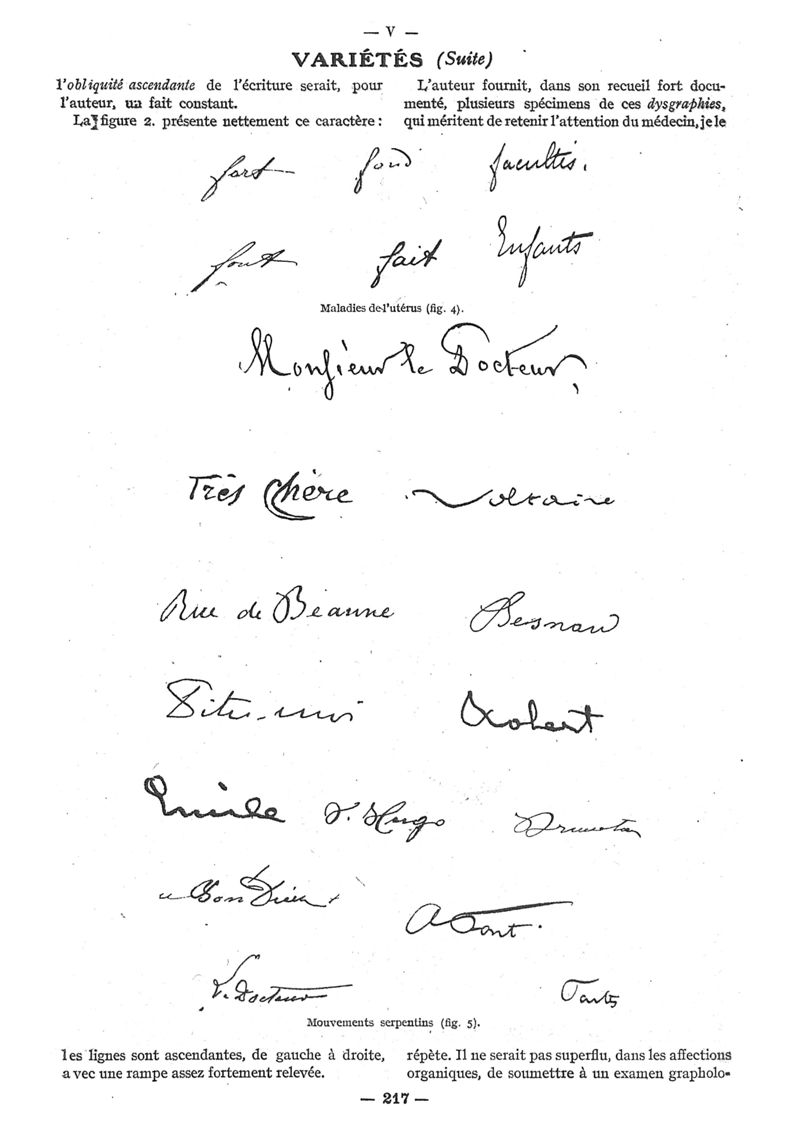 — V —
VARIÉTÉS (Suite)
l'obliquité ascendante de l'écriture serait, pour
l'auteur, un fait constant.
La figure 2. présente nettement ce caractère :
L'auteur fournit, dans son recueil fort docu-
menté, plusieurs spécimens de ces dysgraphies,
qui méritent de retenir l'attention du médecin, je le
fort fond facultés.
font fait Enfants
Maladies de l'utérus (fig. 4).
Monsieur le Docteur,
Très Chère Voltaire
Rue de Beaune Besnard
Dites-moi Robert
Emile V. Hugo
Bon Dieu
A Tont.
V. Docteur Tants
Mouvements serpentins (fig. 5).
les lignes sont ascendantes, de gauche à droite,
avec une rampe assez fortement relevée.
répète. Il ne serait pas superflu, dans les affections
organiques, de soumettre à un examen grapholo-
— 217 —